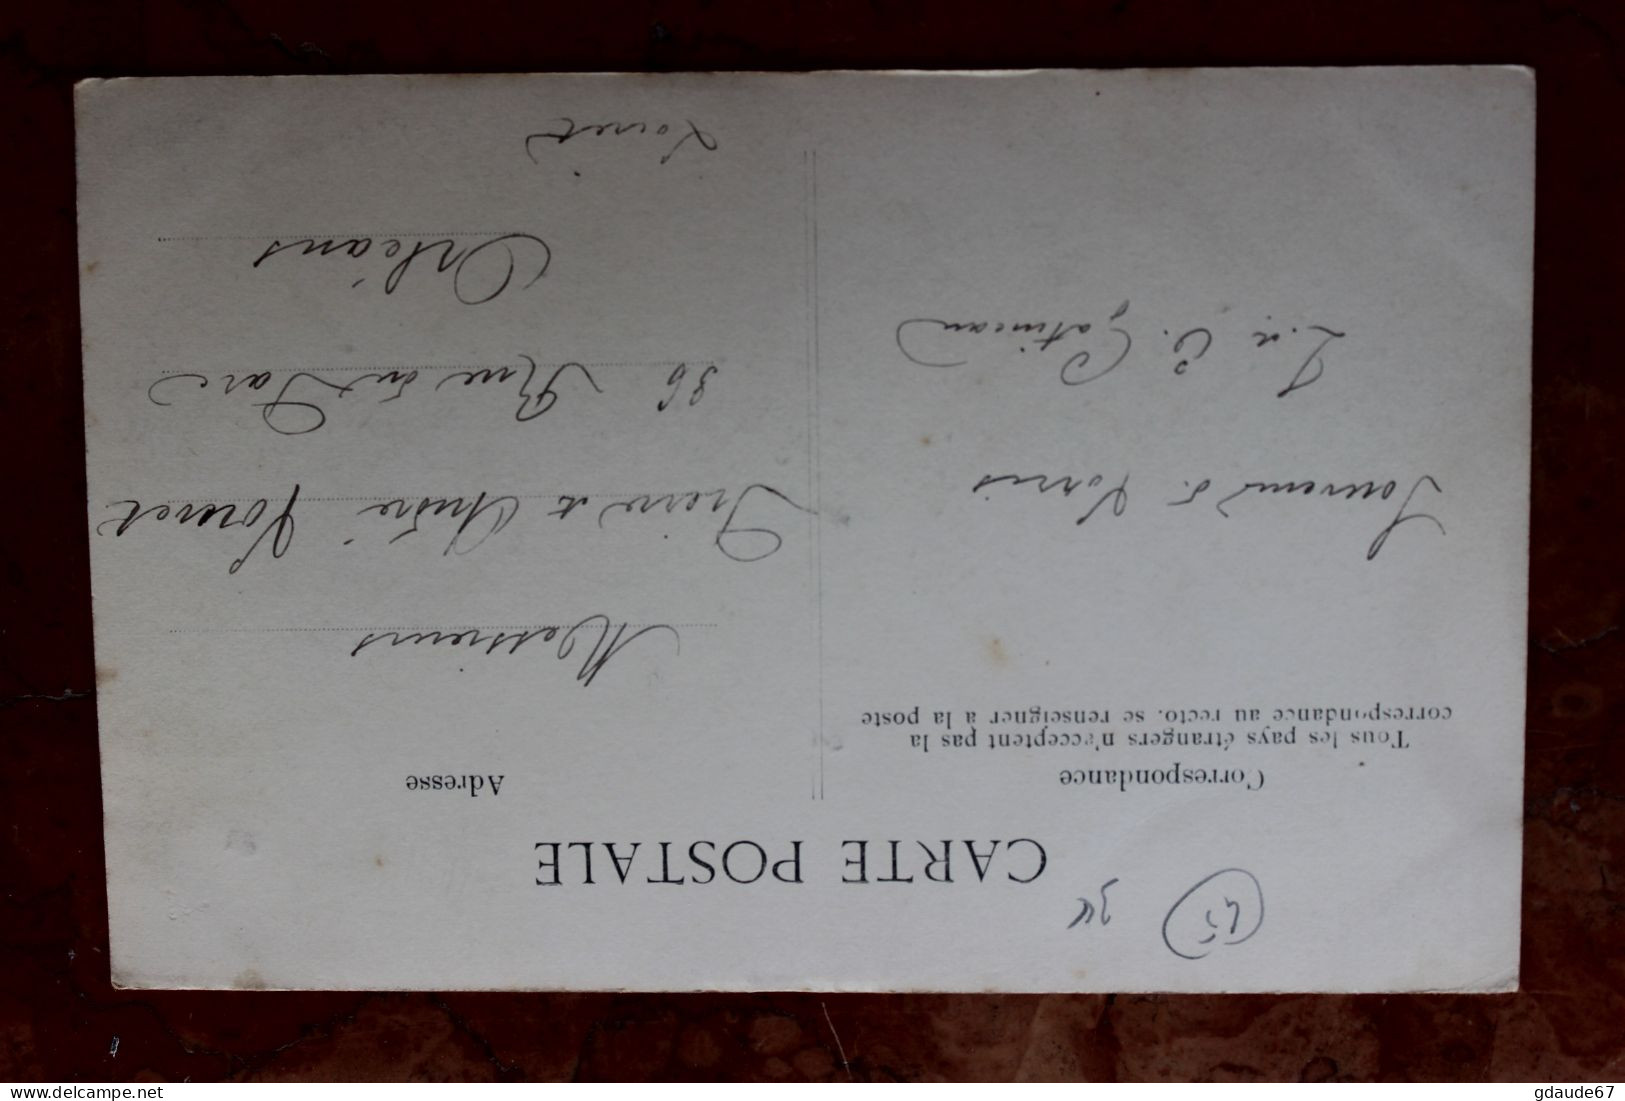 CARTE POSTALE
45
Correspondance
Tous les pays étrangers n'acceptent pas la
correspondance au recto. se renseigner a la poste
Souvenir de Lorris
E. Gatineau
Adresse
Messieurs
Pierre et André
36 Rue du Parc
Orléans
Loiret
gdaude67